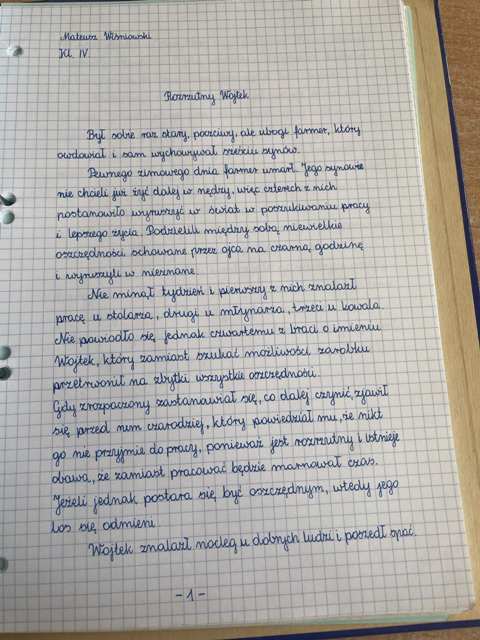 Mateusz Wiśniowski
Kl. IV
Rozrzutny Wojtek
Był sobie raz stary, poczciwy, ale ubogi farmer, który
owdowiał i sam wychowywał sześciu synów.
Pewnego zimowego dnia farmer umarł. Jego synowie
nie chcieli już żyć dalej w nędzy, więc czterech z nich
postanowiło wyruszyć w świat w poszukiwaniu pracy
i lepszego życia. Podzielili między sobą niewielkie
oszczędności schowane przez ojca na czarną godzinę
i wyruszyli w nieznane.
Nie minął tydzień i pierwszy z nich znalazł
pracę u stolarza, drugi u młynarza, trzeci u kowala.
Nie powiodło się jednak czwartemu z braci o imieniu
Wojtek, który zamiast szukać możliwości zarobku
przetrwonił na zbytki wszystkie oszczędności.
Gdy zrozpaczony zastanawiał się, co dalej czynić, zjawił
się przed nim czarodziej, który powiedział mu, że nikt
go nie przyjmie do pracy, ponieważ jest rozrzutny i istnieje
obawa, że zamiast pracować będzie marnował czas.
Jeżeli jednak postara się być oszczędnym, wtedy jego
los się odmieni.
Wojtek znalazł nocleg u dobrych ludzi i poszedł spać.
- 1 -